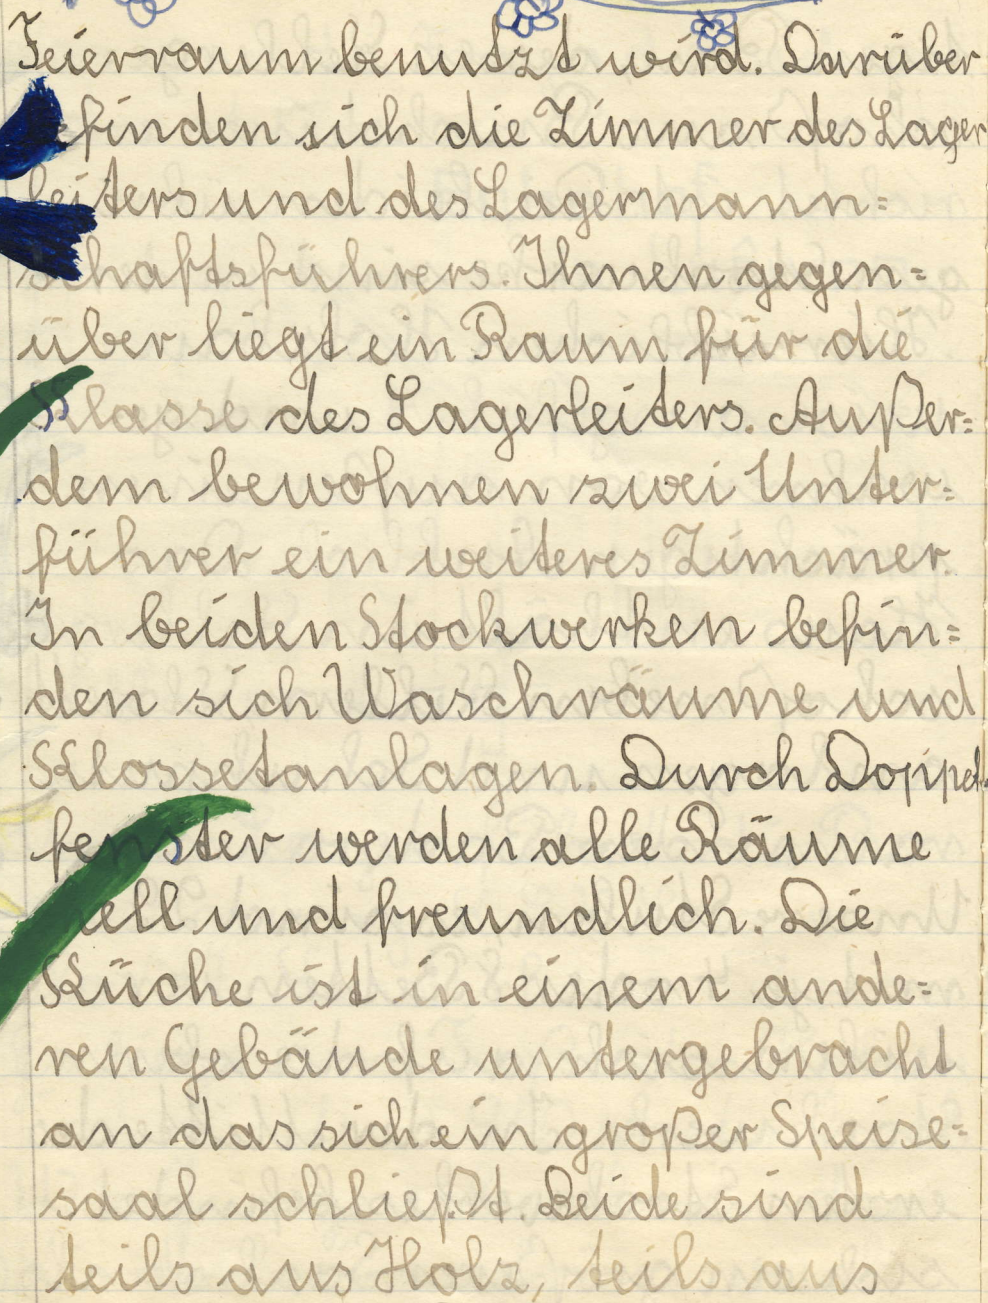 Feierraum benutzt wird. Darüber
befinden sich die Zimmer des Lager
leiters und des Lagermann=
schaftsführers. Ihnen gegen=
über liegt ein Raum für die
Klasse des Lagerleiters. Außer=
dem bewohnen zwei Unter=
führer ein weiteres Zimmer.
In beiden Stockwerken befin=
den sich Waschräume und
Klossetanlagen. Durch Doppel=
fenster werden alle Räume
hell und freundlich. Die
Küche ist in einem ande=
ren Gebäude untergebracht
an das sich ein großer Speise=
saal schließt. Beide sind
teils aus Holz, teils aus